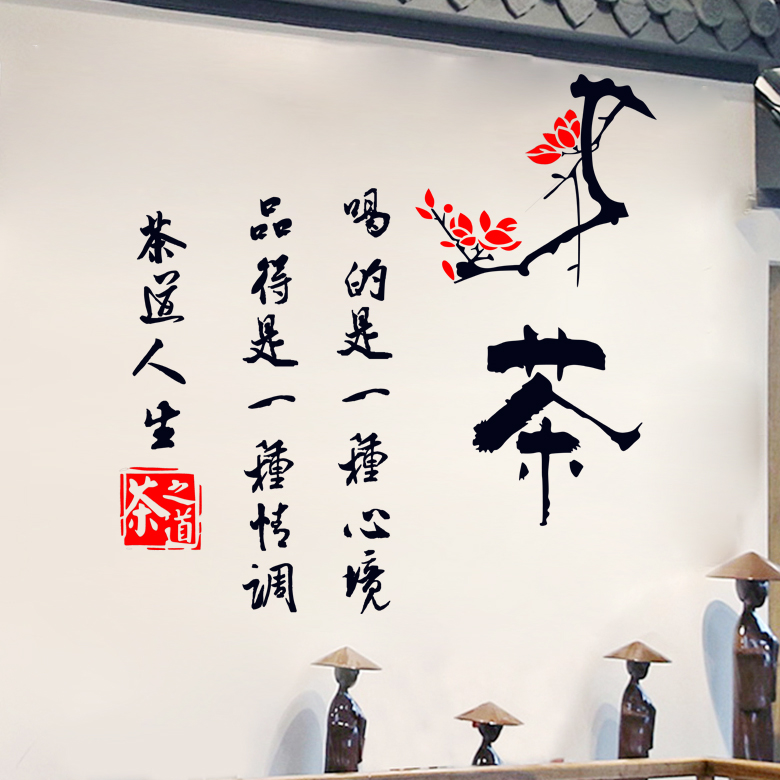 茶
喝的是一種心境
品得是一種情調
茶道人生
茶之道